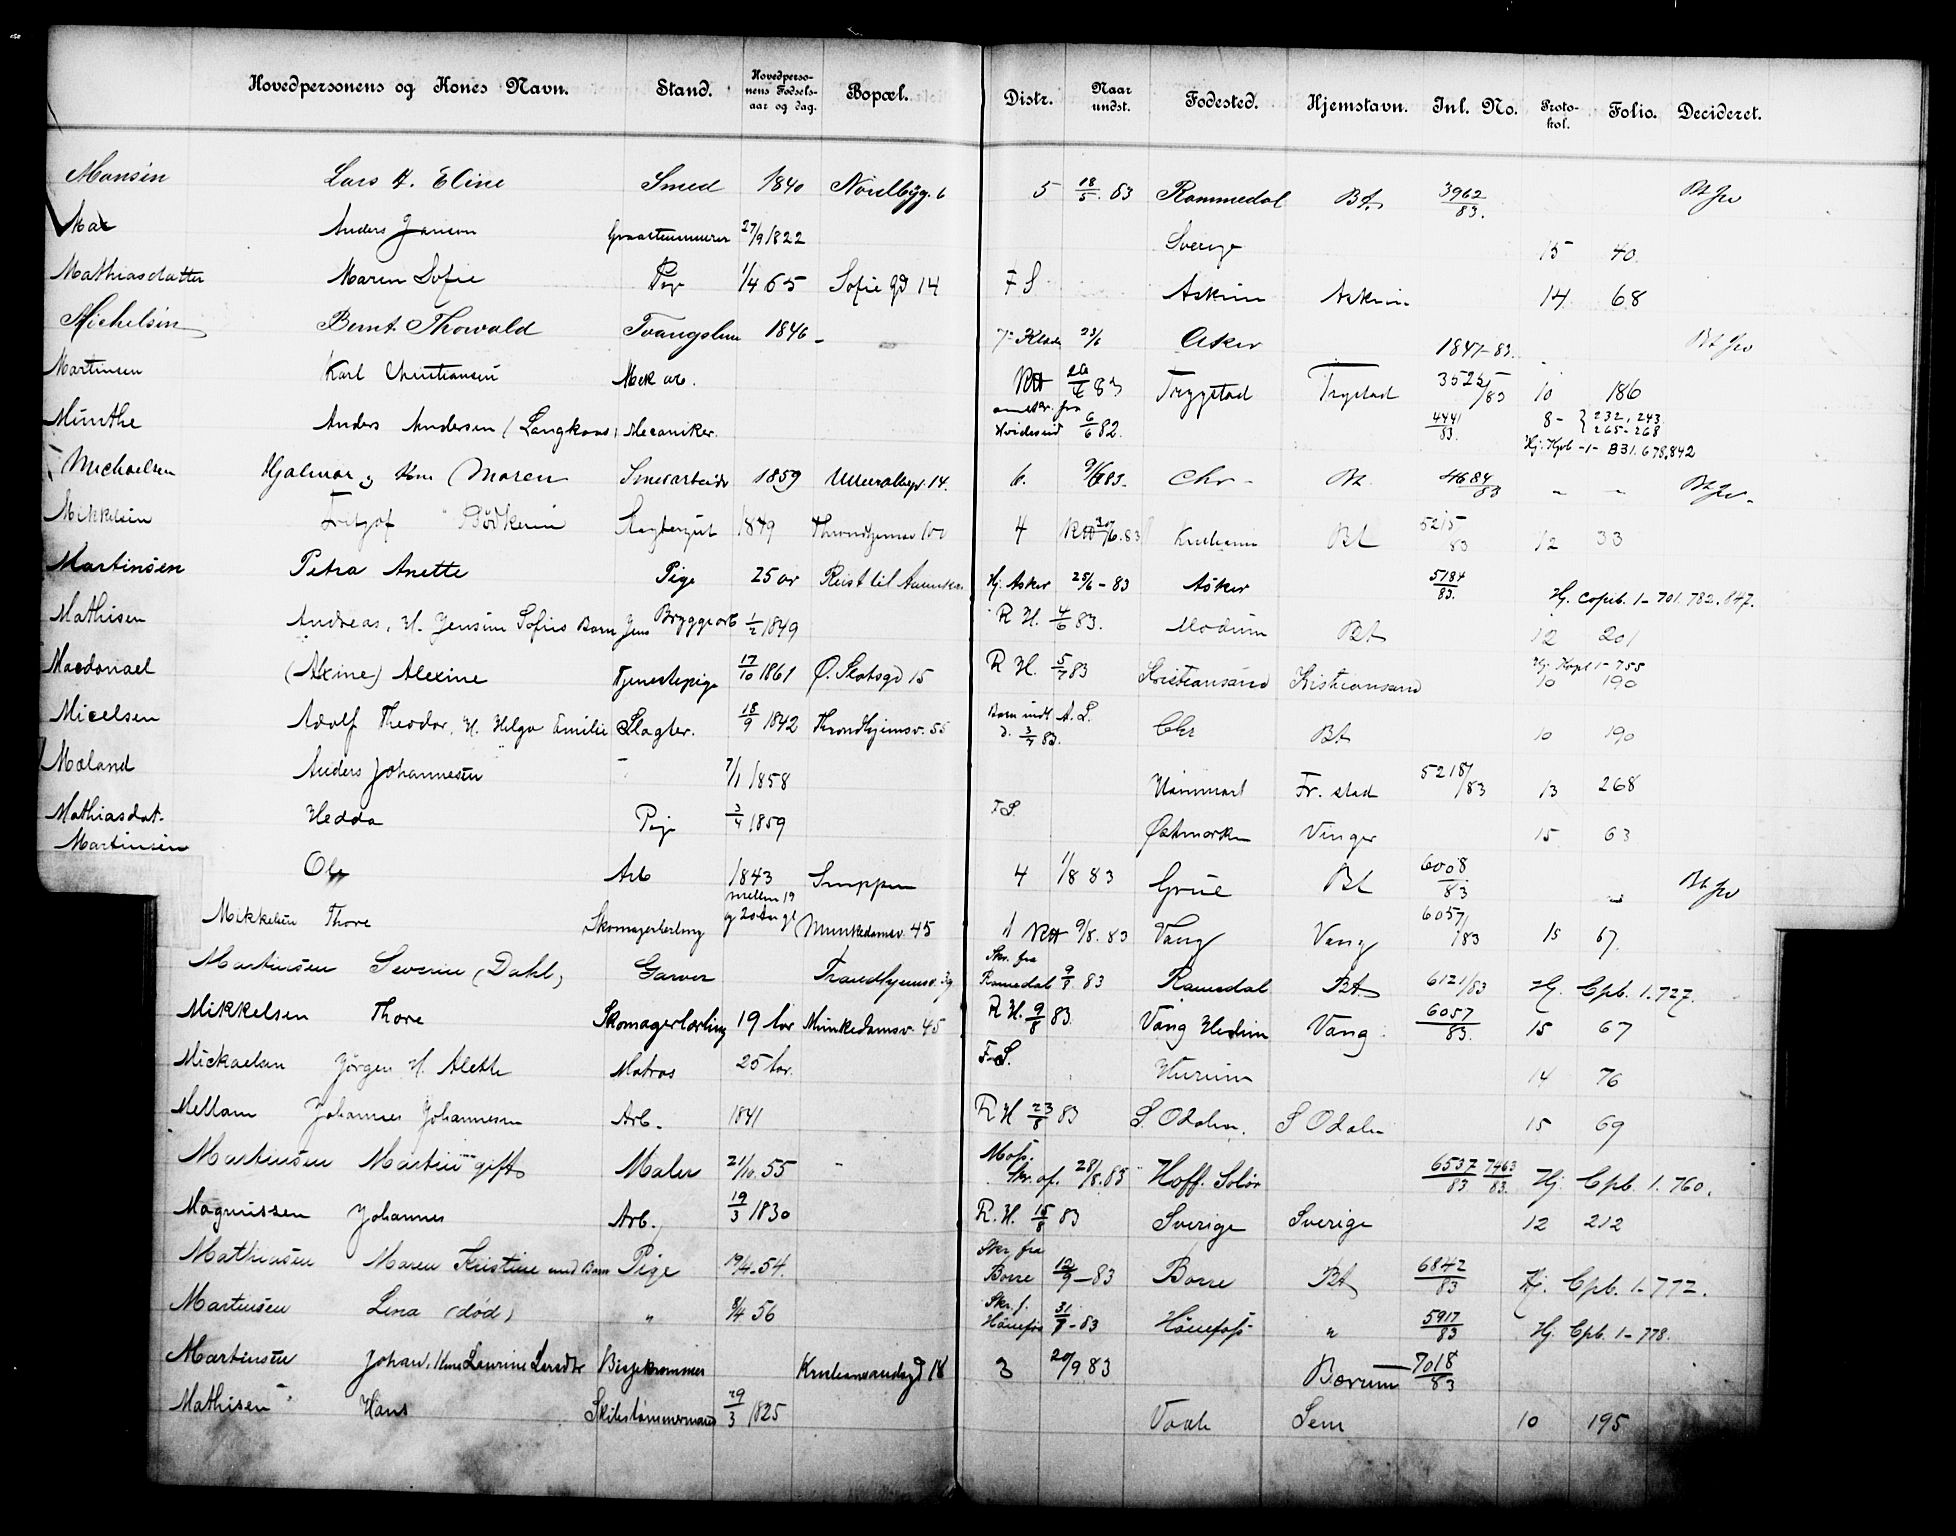 Hovedpersonens og Kones Navn. Stand. Hovedpersonens Fødselsaar og dag. Bopæl. Distr. Naar undst. Fødested. Hjemstavn. Inl. No. Protokol. Folio. Decideret.
Monsen Lars H. Eline Smed 1840 Nordbyg. 6 5 18/5. 83 Rommedal Bt. 3962/83.
Anders Jonson 27/9 1822 Sverige 15 40
Mathiasdatter Maren Sofie Pige 1/4 65 Sofie gd 14 F S Askim Askim 14 68
Michelsen Bernt Thorvald 1846 23/6 Asker 1847-83.
Martinsen Karl Christiansen Mek arb. RH 83 Trygstad Trygstad 3525/83 10 186
Munthe Anders Andersen (Langkaas) Mecaniker. Hvideseid 6/6 82. 4441/83. 8- 232, 243 265-268
Hj. Kpb -1- 831. 678, 842
Michaelsen Hjalmar og Kone (Maren 1859 Ullevaalsv. 14. 6. 9/6 83. Chr - Bt. 4684/83 - -
Mikkelsen Fritjof 1849 Throndhjemsv 100 4 RH 30/6. 83 Bt 5215/83 12 33
Martinsen Petra Anette Pige 25 år Reist til Amerika Hj. Asker 25/6 - 83 Asker 5184/83. Hj. copib. 1- 701. 782. 847.
Mathisen Andreas, H. Jensine Sofies Barn Jens Bryggearb 1/2 1849 R H. 4/6 83. Modum Bt 12 201
Macdonael (Axine) Alexine Tjenestepige 17/10 1861 Ø. Slotsgd 15 R H. 5/7 83 Kristiansand Kristiansand Hj. Kopb 1- 755 10 190
Micelsen Adolf Theodor, H. Helga Emilie Slagter. 18/9 1842 Throndhjemsv. 55 Barn indl A. S. d. 3/7 83. Chr Bt 10 190
Mæland Anders Johannesen 7/1 1858 Fr. stad 5218/83 13 268
Mathiasdat. Hedda Pige 3/4 1859 F S. Østmarken Vinger 15 63
Martinsen
Ole Arb 1843 4 1/8 83 Grue Bt 6008/83
Mikkelsen Thore Skomagerlærling mellem 19 og 20 Aar gl Munkedamsv. 45 1 RH 9/8. 83 Vang Vang 6057/83 15 67.
Martinsen Severin (Dahl) Garver Trondhjemsv. 39 Skr. fra Ramedal 9/8 83 Ramedal Bt 6121/83 Hj. Cpb. 1. 727.
Mikkelsen Thore Skomagerlærling 19 Aar Munkedamsv. 45 R H. 9/8 83. Vang Hedem Vang 6057/83. 15 67
Mickaelsen Jörgen H. Aleth Matros 25 Aar. F S. Hurum 14 76
Mellam Johannes Johannesen Arb. 1841 R H 23/8 83 S. Odalen. S Odalen 15 69
Martinsen Martin gift Maler 21/10. 55 - Moss. Skr. af. 28/8. 83 Hoff. Solør 6537/83 7463/83. Hj. Cpb. 1. 760.
Magnussen Johannes Arb. 19/3 1830 R. H. 15/8 83 Sverige Sverige 12 212
Mathiesen Maren Kristine med Barn Pige 19/4. 54. Skr. fra Borre 12/9 - 83 Borre Bt 6842/83 Hj. Cpb. 1- 772.
Martinsen Lena (død) " 8/4 56 Skr. f. Hønefos 31/7 - 83 Hønefoss " 5917/83 Hj. Cpb. 1- 778.
Martinsen Johan, H. Laurine Larsdtr Kristiansandsgd 18 3 20/9 83 Bærum 7018/83
Mathisen Hans Skibstømmermand 29/3 1825 Vaale Sem 10 195